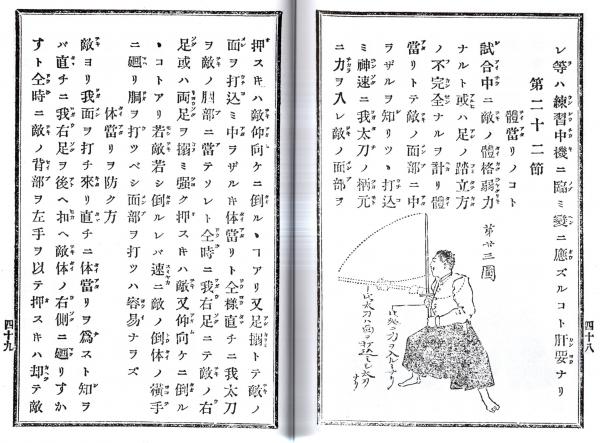 レ等ハ練習中機ニ臨ミ變ニ應ズルコト肝要ナリ
第二十二節
體當リノコト
試合中ニ敵ノ體格弱力
ナルト或ハ足ノ踏立方
ノ不完全ナルヲ計リ體
當リト敵ノ面部ニ中
ヲザルヲ知リツヽ打込
ミ神速ニ我太刀ノ柄元
ニ力ヲ入レ敵ノ面部ヲ
第廿三圖
此太刀ハ面ヲ打込ミシ太刀
ナリ
四十八
押スキハ敵仰向ケニ倒ルヽヿアリ又足搦トテ敵ノ
面ヲ打込ミ中ヲザルキ体當リト仝樣直チニ我太刀
ヲ敵ノ胴部ニ當テソレト仝時ニ我右足ニテ敵ノ右
足或ハ両足ヲ搦ミ強ク押スキハ敵又仰向ケニ倒ル
ヽコトアリ若敵若シ倒ルレバ速ニ敵ノ倒体ノ橫手
ニ廻リ胴ヲ打ツベシ面部ヲ打ツハ容易ナヲズ
体當リヲ防ク方
敵ヨリ我面ヲ打チ來リ直チニ体當リヲ爲スト知ヲ
バ直チニ我右足ヲ後ヘ扣ヘ敵体ノ右側ニ廻リすか
スト仝時ニ敵ノ背部ヲ左手ヲ以テ押スキハ却テ敵
四十九